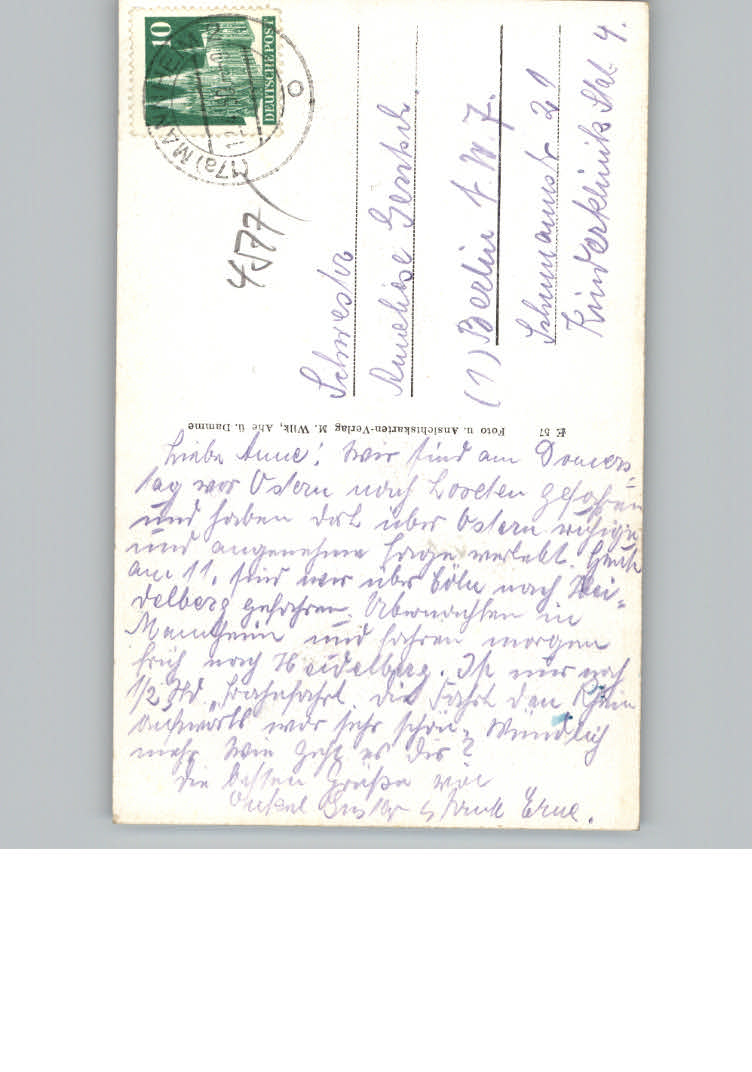 Liebe Anne! Wir sind am Donners=
tag vor Ostern nach gefahren
und haben dort über Ostern ruhige
und angenehme Tage verlebt. Heute
am 11. sind wir über Cöln nach Hei=
delberg gefahren. Übernachten in
Mannheim und fahren morgen
früh nach Heidelberg. Ist nur noch
1/2 Std. Bahnfahrt. Die Fahrt den Rhein
aufwärts war sehr schön. Mündlich
mehr. Wie geht es Dir?
Die besten Grüße von
Onkel & Tante Erne.
Foto u. Ansichtskarten-Verlag M. Wilk, Ahe ü. Damme
E 57
10
DEUTSCHE POST
(17a) MANNHEIM
4577
Schwester
Anneliese
(1) Berlin N.W. 7.
Schumannstr 21
Kinderklinik Stat. 4.